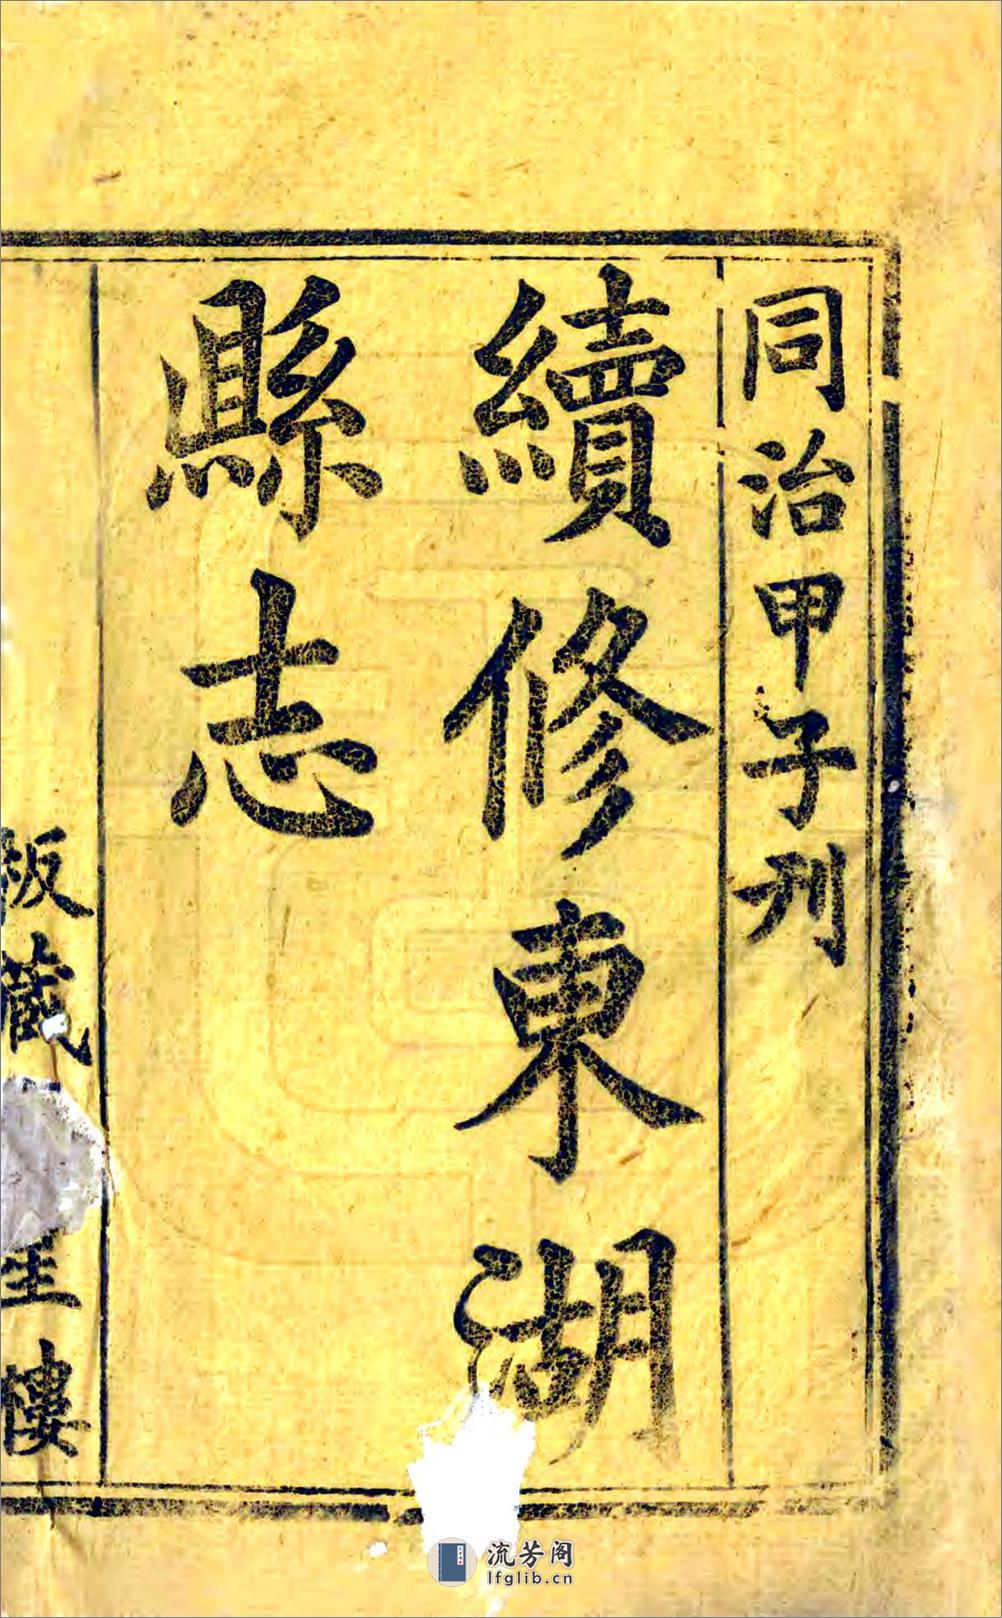 同治甲子刊
續修東湖
縣志
板藏
樓
流芳阁
lfglib.cn